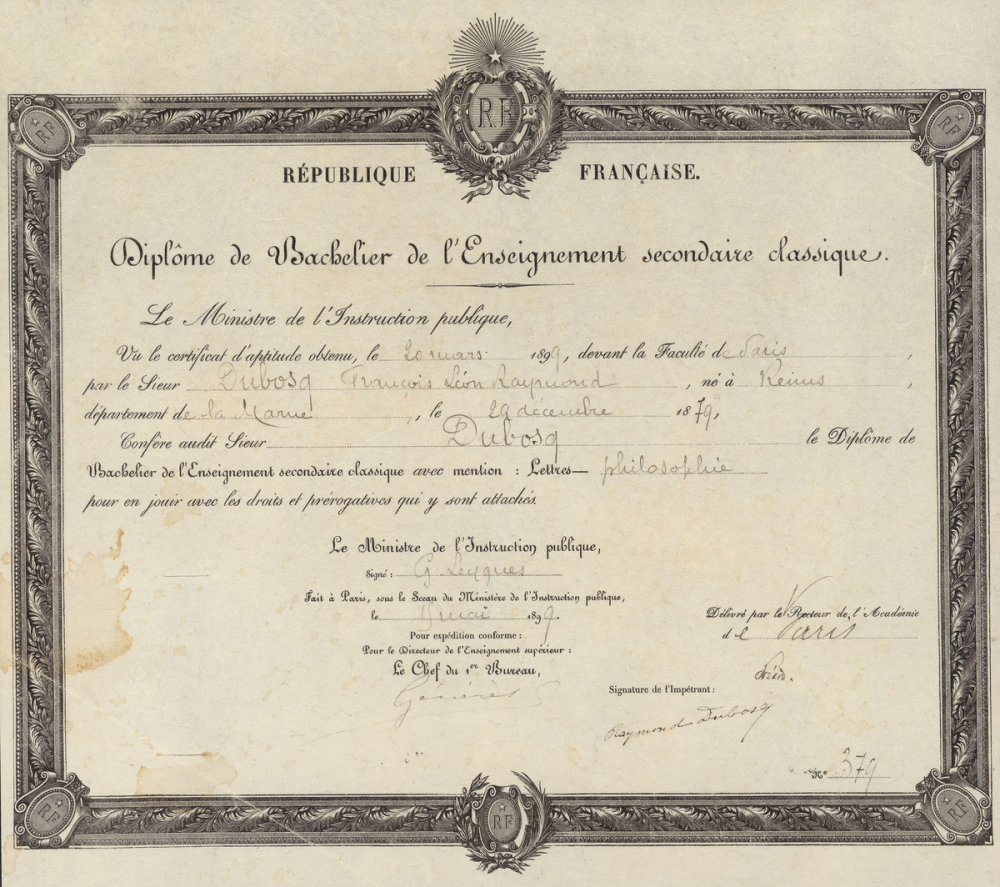 RF
RF
RF
RÉPUBLIQUE FRANÇAISE.
Diplôme de Bachelier de l'Enseignement secondaire classique.
Le Ministre de l'Instruction publique,
Vu le certificat d'aptitude obtenu, le 20 mars 1899, devant la Faculté de Paris,
par le Sieur Dubosq François Léon Raymond, né à Reims,
département de la Marne, le 29 décembre 1879,
Confère audit Sieur Dubosq le Diplôme de
Bachelier de l'Enseignement secondaire classique avec mention : Lettres— philosophie
pour en jouir avec les droits et prérogatives qui y sont attachés.
Le Ministre de l'Instruction publique,
Signé : G Leygues
Fait à Paris, sous le Sceau du Ministère de l'Instruction publique,
le mai 1899.
Délivré par le Recteur de l'Académie
de Paris
Pour expédition conforme :
Pour le Directeur de l'Enseignement supérieur :
Le Chef du 1er Bureau,
Signature de l'Impétrant :
Raymond Dubosq
No 379
RF
RF
RF